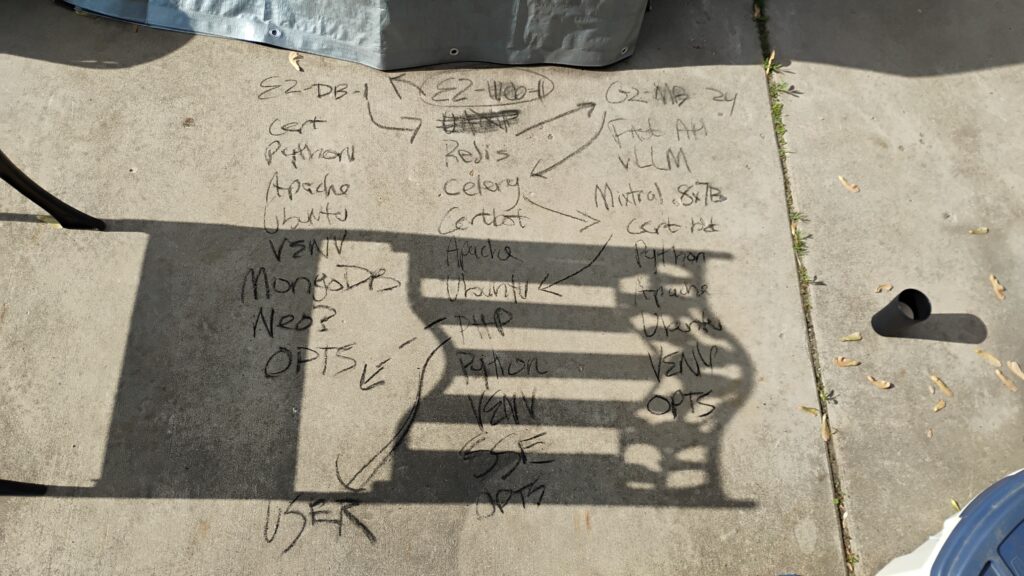 EZ-DB-1
cert
Python
Apache
Ubuntu
VENV
MongoDB
Neo?
OPTS
USER
EZ-Web-1
Redis
Celery
Certbot
Apache
Ubuntu
PHP
Python
VENV
SSE
OPTS
G2-MB 24
Fast API
vLLM
Mixtral 8x7B
Cert bot
Python
Apache
Ubuntu
VENV
OPTS